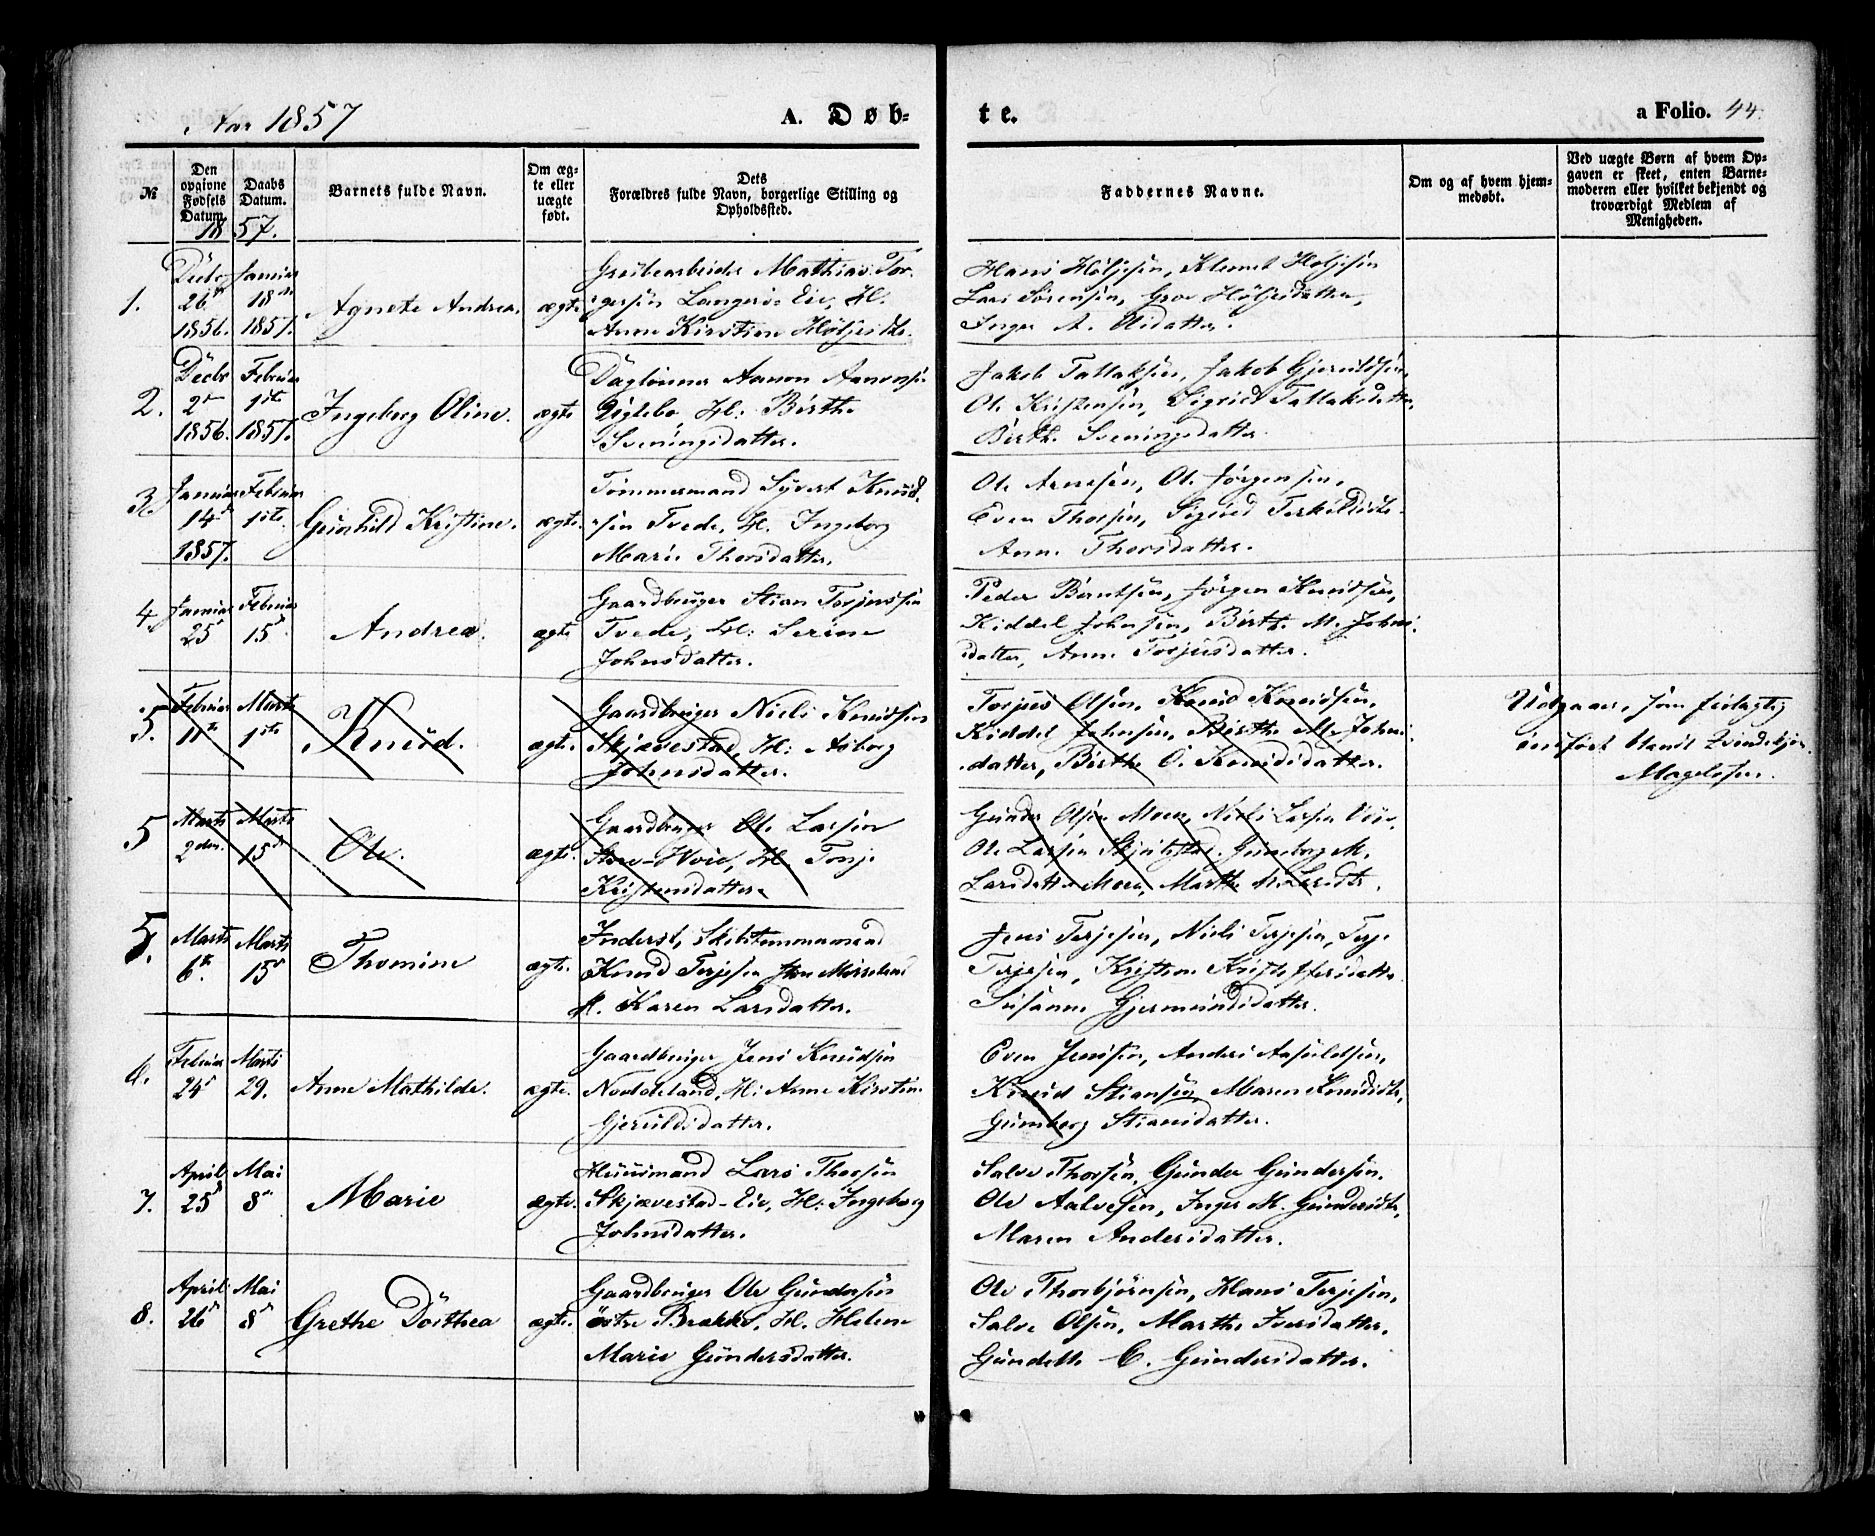 Aar 1857
A. Døb-
te.
a Folio. 44.
№
Den opgivne Fødsels Datum.
Daabs Datum.
Barnets fulde Navn.
Om ægte eller uægte født.
Dets
Forældres fulde Navn, borgerlige Stilling og
Opholdsted.
Faddernes Navne.
Om og af hvem hjem-
medøbt.
Ved uægte Børn af hvem Op-
gaven er skeet, enten Barne-
moderen eller hvilket bekjendt og
troværdigt Medlem af
Menigheden.
1857.
1.
Decbr 26de 1856.
Januar 18de 1857.
Agnete Andrea.
ægte
Grubearbeider Mathias Tor-
gersen Langerö Eie, H.
Anne Kirstine Höljesdtr.
Hans Höljesen, Klemet Höljesen
Lars Sörensen, Groe Höljesdatter,
Inger A. Olsdatter.
2.
Decbr 2den 1856.
Februar 1ste 1857.
Ingeborg Oline.
ægte
Daglönner Aanon Aanonsen
Diglebo, H: Birthe
Sveningsdatter.
Jakob Tallaksen, Jakob Gjeruldsen,
Ole Kristensen, Sigrid Tallaksdatter,
Birthe Sveningsdatter.
3.
Januar 14de 1857.
Februar 1ste.
Gunhild Kristine.
ægte.
Tömmermand Syvert Knud-
sen Tvede, H. Ingeborg
Marie Thorsdatter.
Ole Arnesen, Ole Jörgensen,
Even Thorsen, Sigrid Terkildsdtr.
Anne Thorsdatter.
4.
Januar 25de
Februar 15de
Andrea.
ægte
Gaardbruger Stian Torjussen
Tvede, H: Serine
Johnsdatter.
Peder Berntsen, Jörgen Knudsen,
Kiddel Johnsen, Birthe M. Johns-
datter, Anne Torjusdatter.
5.
Februar 11te
Marts 1ste
Knud.
ægte.
Gaardbruger Niels Knudsen
Skjævestad, H: Asborg
Johnsdatter.
Torjus Olsen, Knud Knudsen,
Kiddel Johnsen, Birthe M. Johns-
datter, Birthe O. Knudsdatter.
Udgaaer, som feilagtig
indført blandt Kvindekjøn.
Magelssen.
5
Marts 2den.
Marts 15de
Ole.
ægte.
Gaardbruger Ole Larsen
Store-Svie, H Torje
Kristensdatter.
Gunder Olsen Moen, Niels Larsen
Ole Larsen Skjulestad, Gunborg M.
Larsdatter Moen, Marthe M. Larsdtr.
5.
Marts 6te.
Marts 15de
Thomine
ægte.
Inderst, Skibstömmermand
Knud Terjesen
H. Karen Larsdatter.
Jens Terjesen, Niels Terjesen, Terje
Terjesen, Kristine Kristoffersdatter
Susanne Gjermundsdatter.
6.
Februar 24de
Marts 29.
Anne Mathilde.
ægte.
Gaardbruger Jens Knudsen
Noddeland, H: Anne Kirstine
Gjeruldsdatter.
Even Jensen, Anders Aasuldsen,
Knud Stiansen, Maren Knudsdtr,
Gunborg Stiansdatter.
7.
April 25de
Mai 8de
Marie
ægte.
Huusmand Lars Thorsen
Skjævestad-Eie, H: Ingeborg
Johnsdatter.
Salve Thorsen, Gunder Gundersen.
Ole Aalvesen, Inger M. Gundersdtr,
Maren Andersdatter.
8.
April 26de
Mai 8de
Grethe Dorthea
ægte.
Gaardbruger Ole Gundersen
östre Brække, H. Helene
Marie Gundersdatter.
Ole Thorbjörnsen, Hans Terjesen,
Salve Olsen, Marthe Iversdatter,
Gundelle C. Gundersdatter.